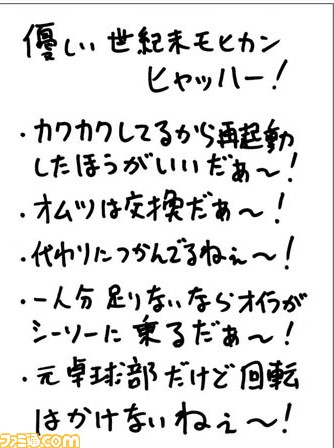 優しい世紀末モヒカン
ヒャッハー!
・カクカクしてるから再起動
したほうがいいだぁ〜!
・オムツは交換だぁ〜!
・代わりにつかんでるねぇ〜!
・一人分足りないならオイラが
シーソーに乗るだぁ〜!
・元卓球部だけど回転
はかけないねぇ〜!
ファミ通.com